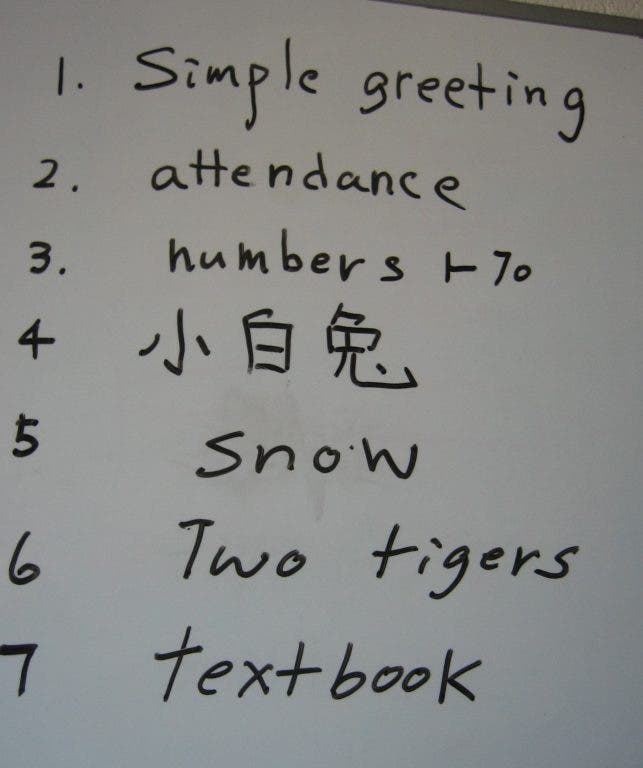 1. Simple greeting
2. attendance
3. numbers 1-70
4 小白兔
5 snow
6 Two tigers
7 textbook